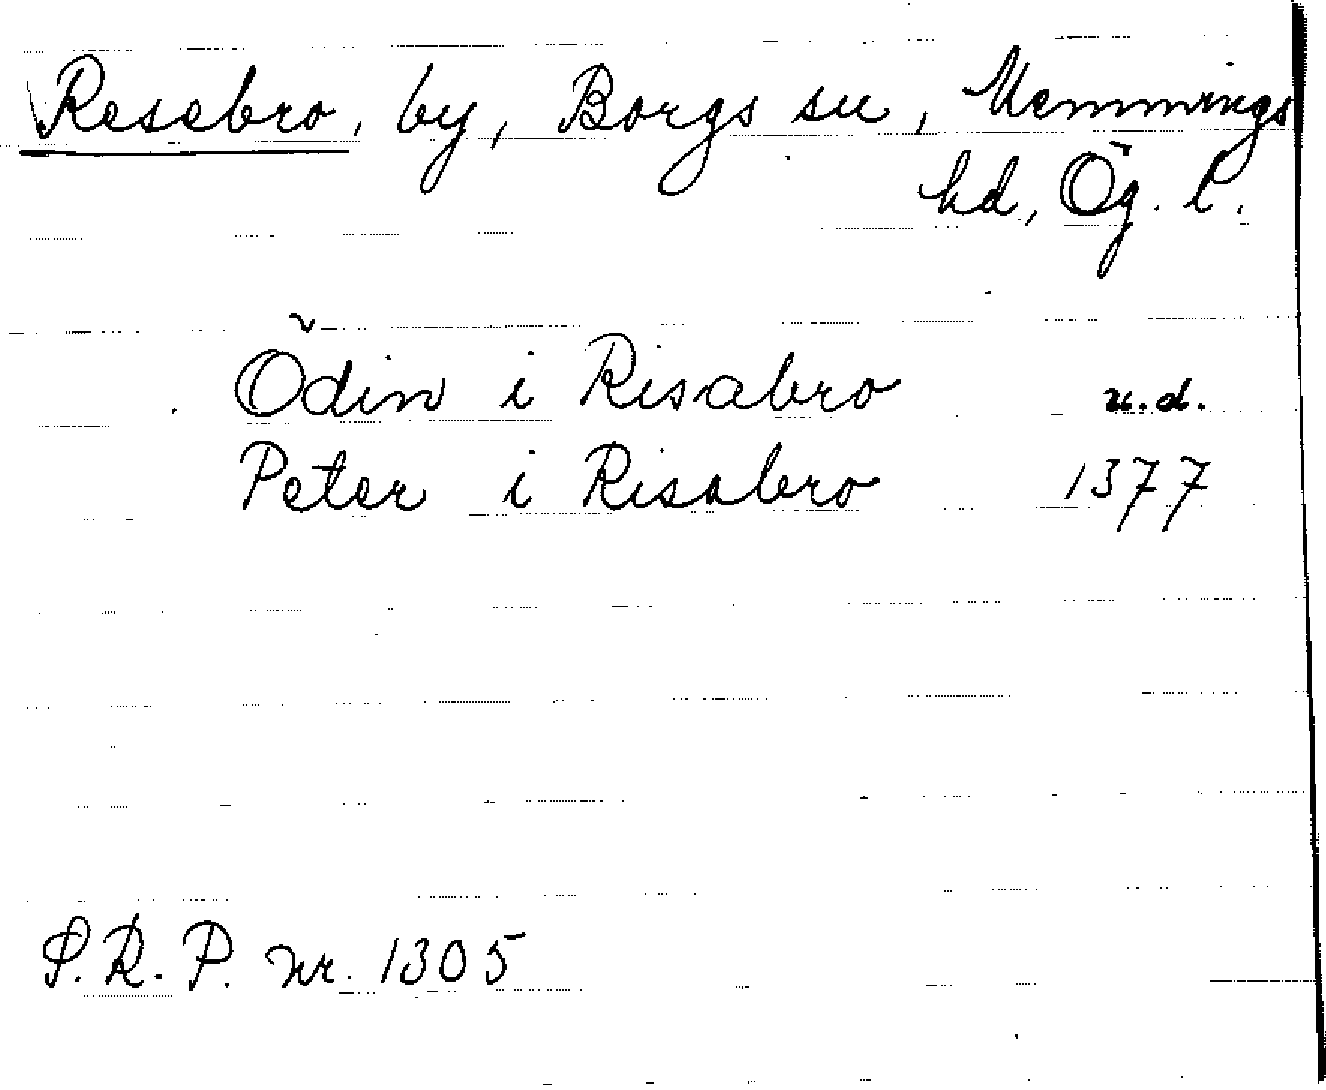 Resebro, by, Borgs sn, Memmings
hd, Ög. l.
Ödin i Risabro u.d.
Peter i Risabro 1377
S.R.P. nr. 1305